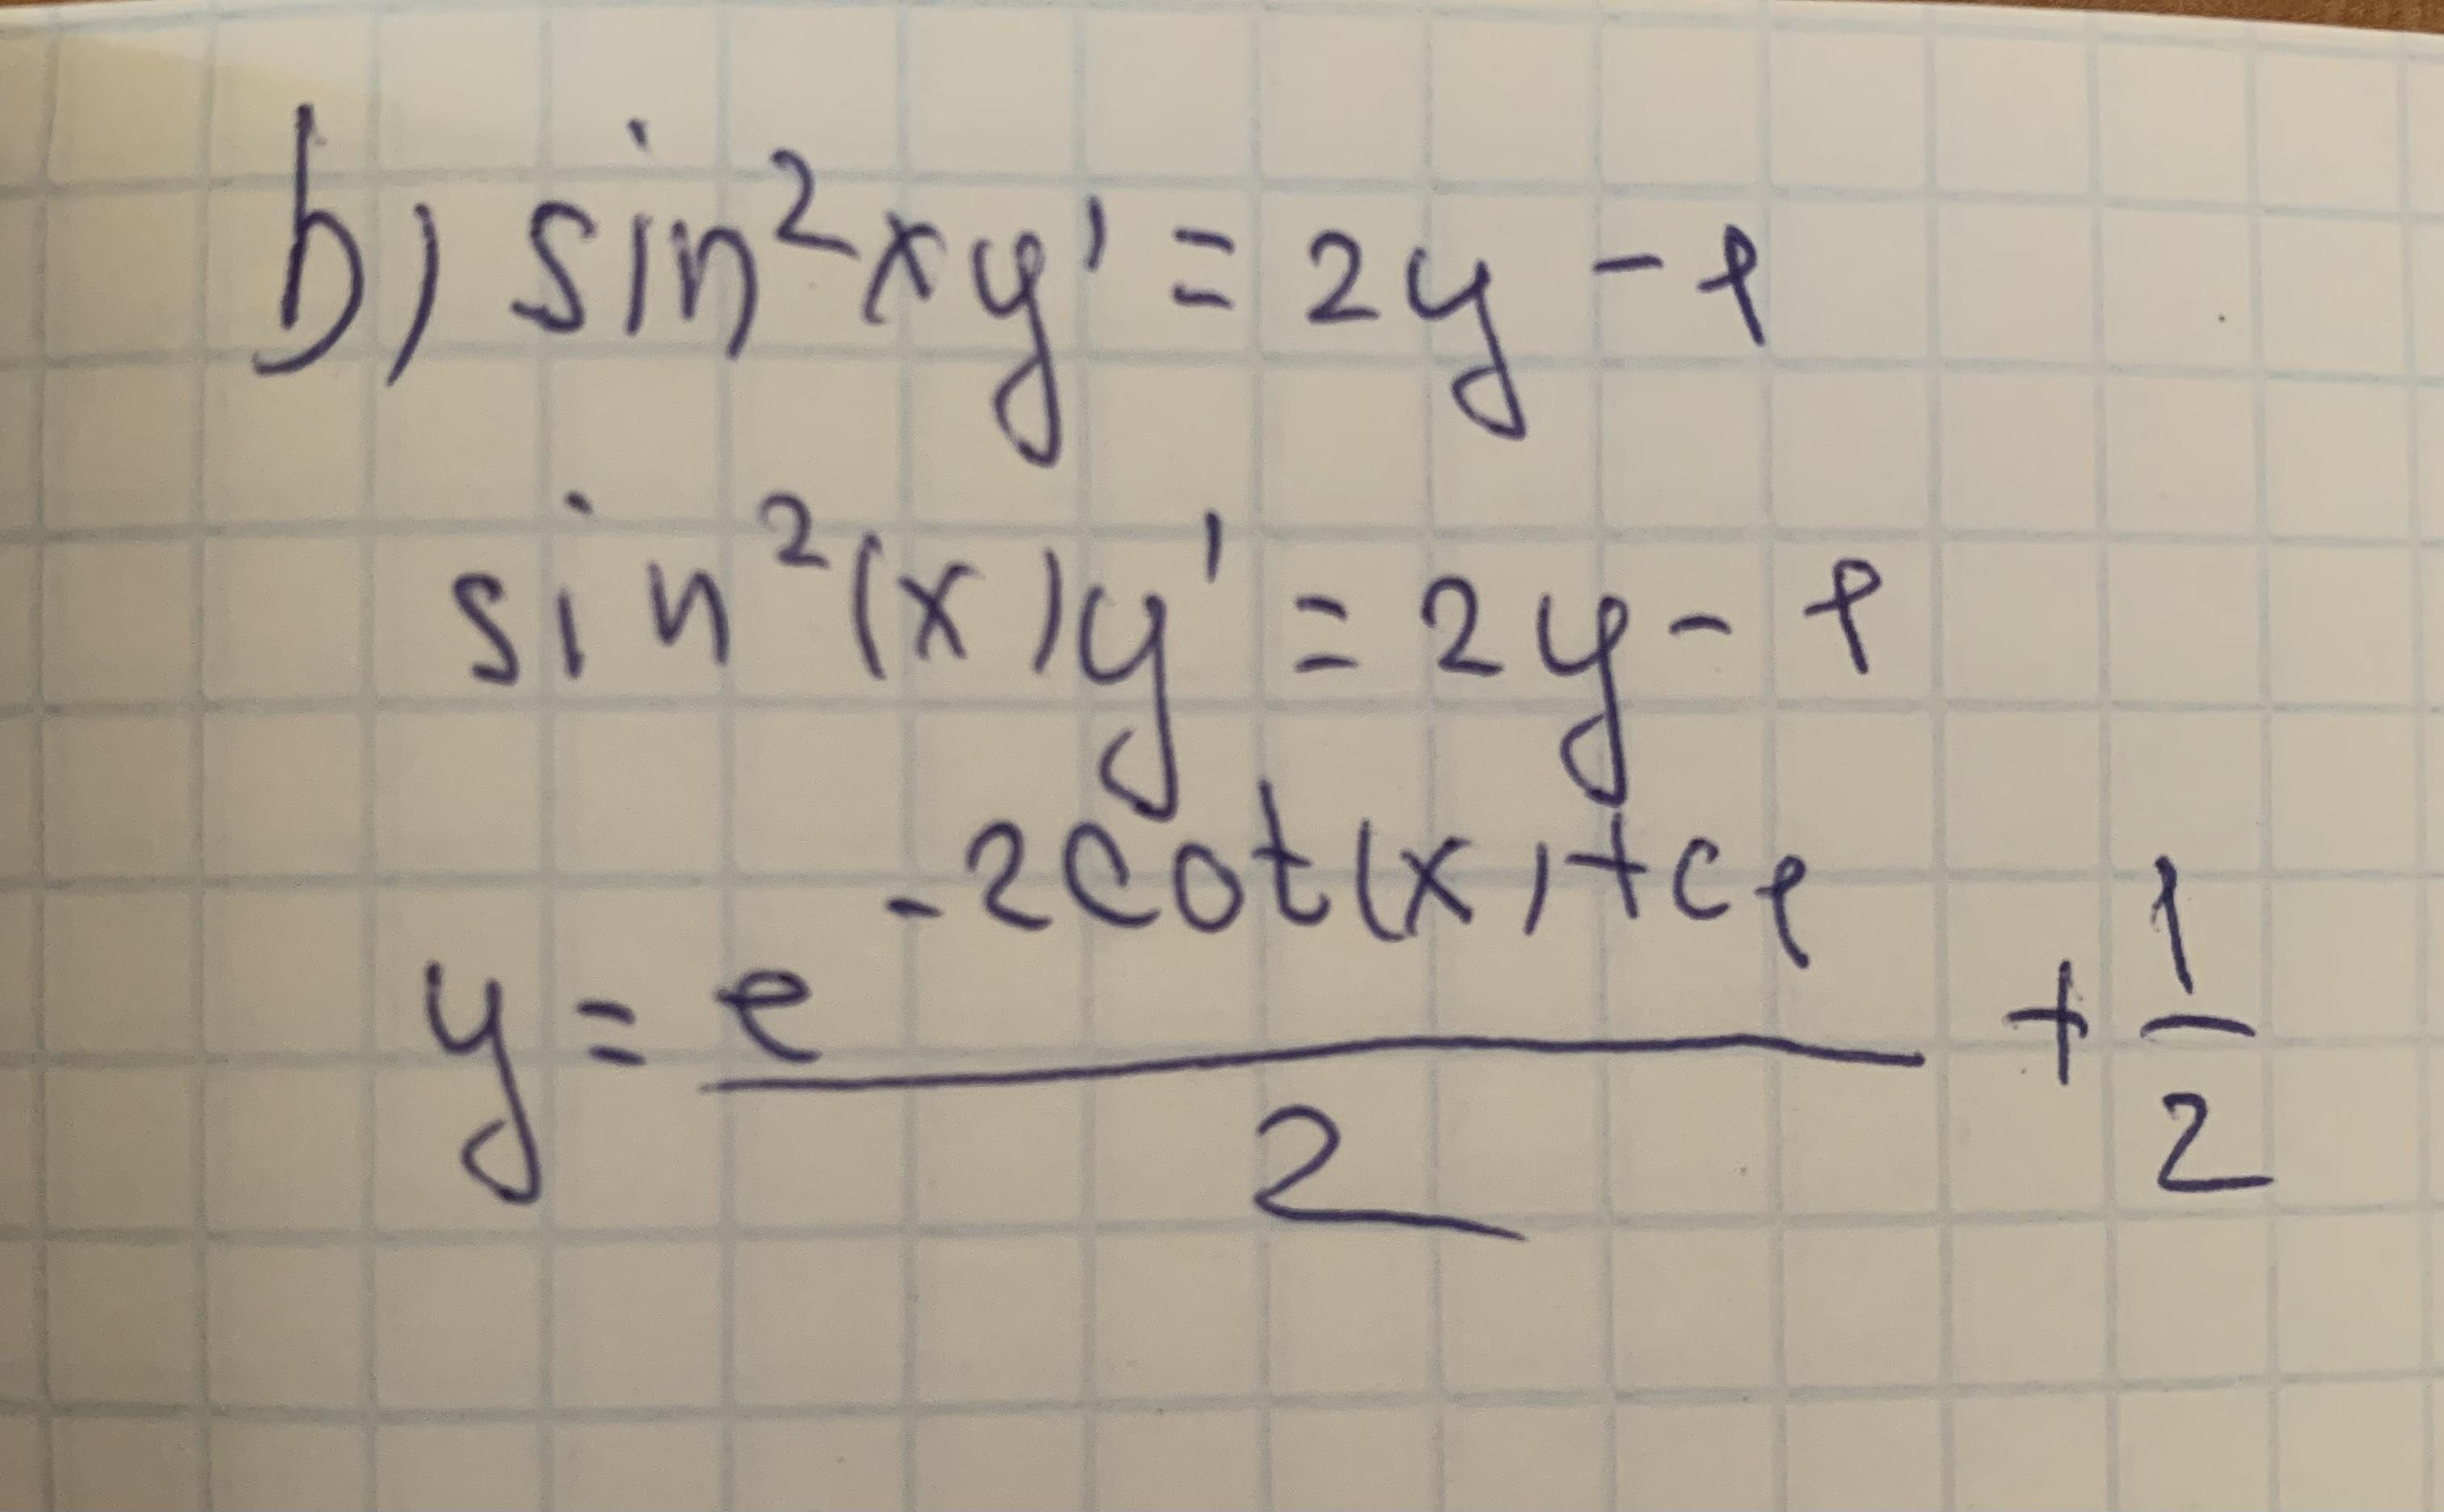 b) sin²xy' = 2y - 1
sin²(x)y' = 2y - 1
y = e^(-2cot(x)+c₁)/2 + 1/2